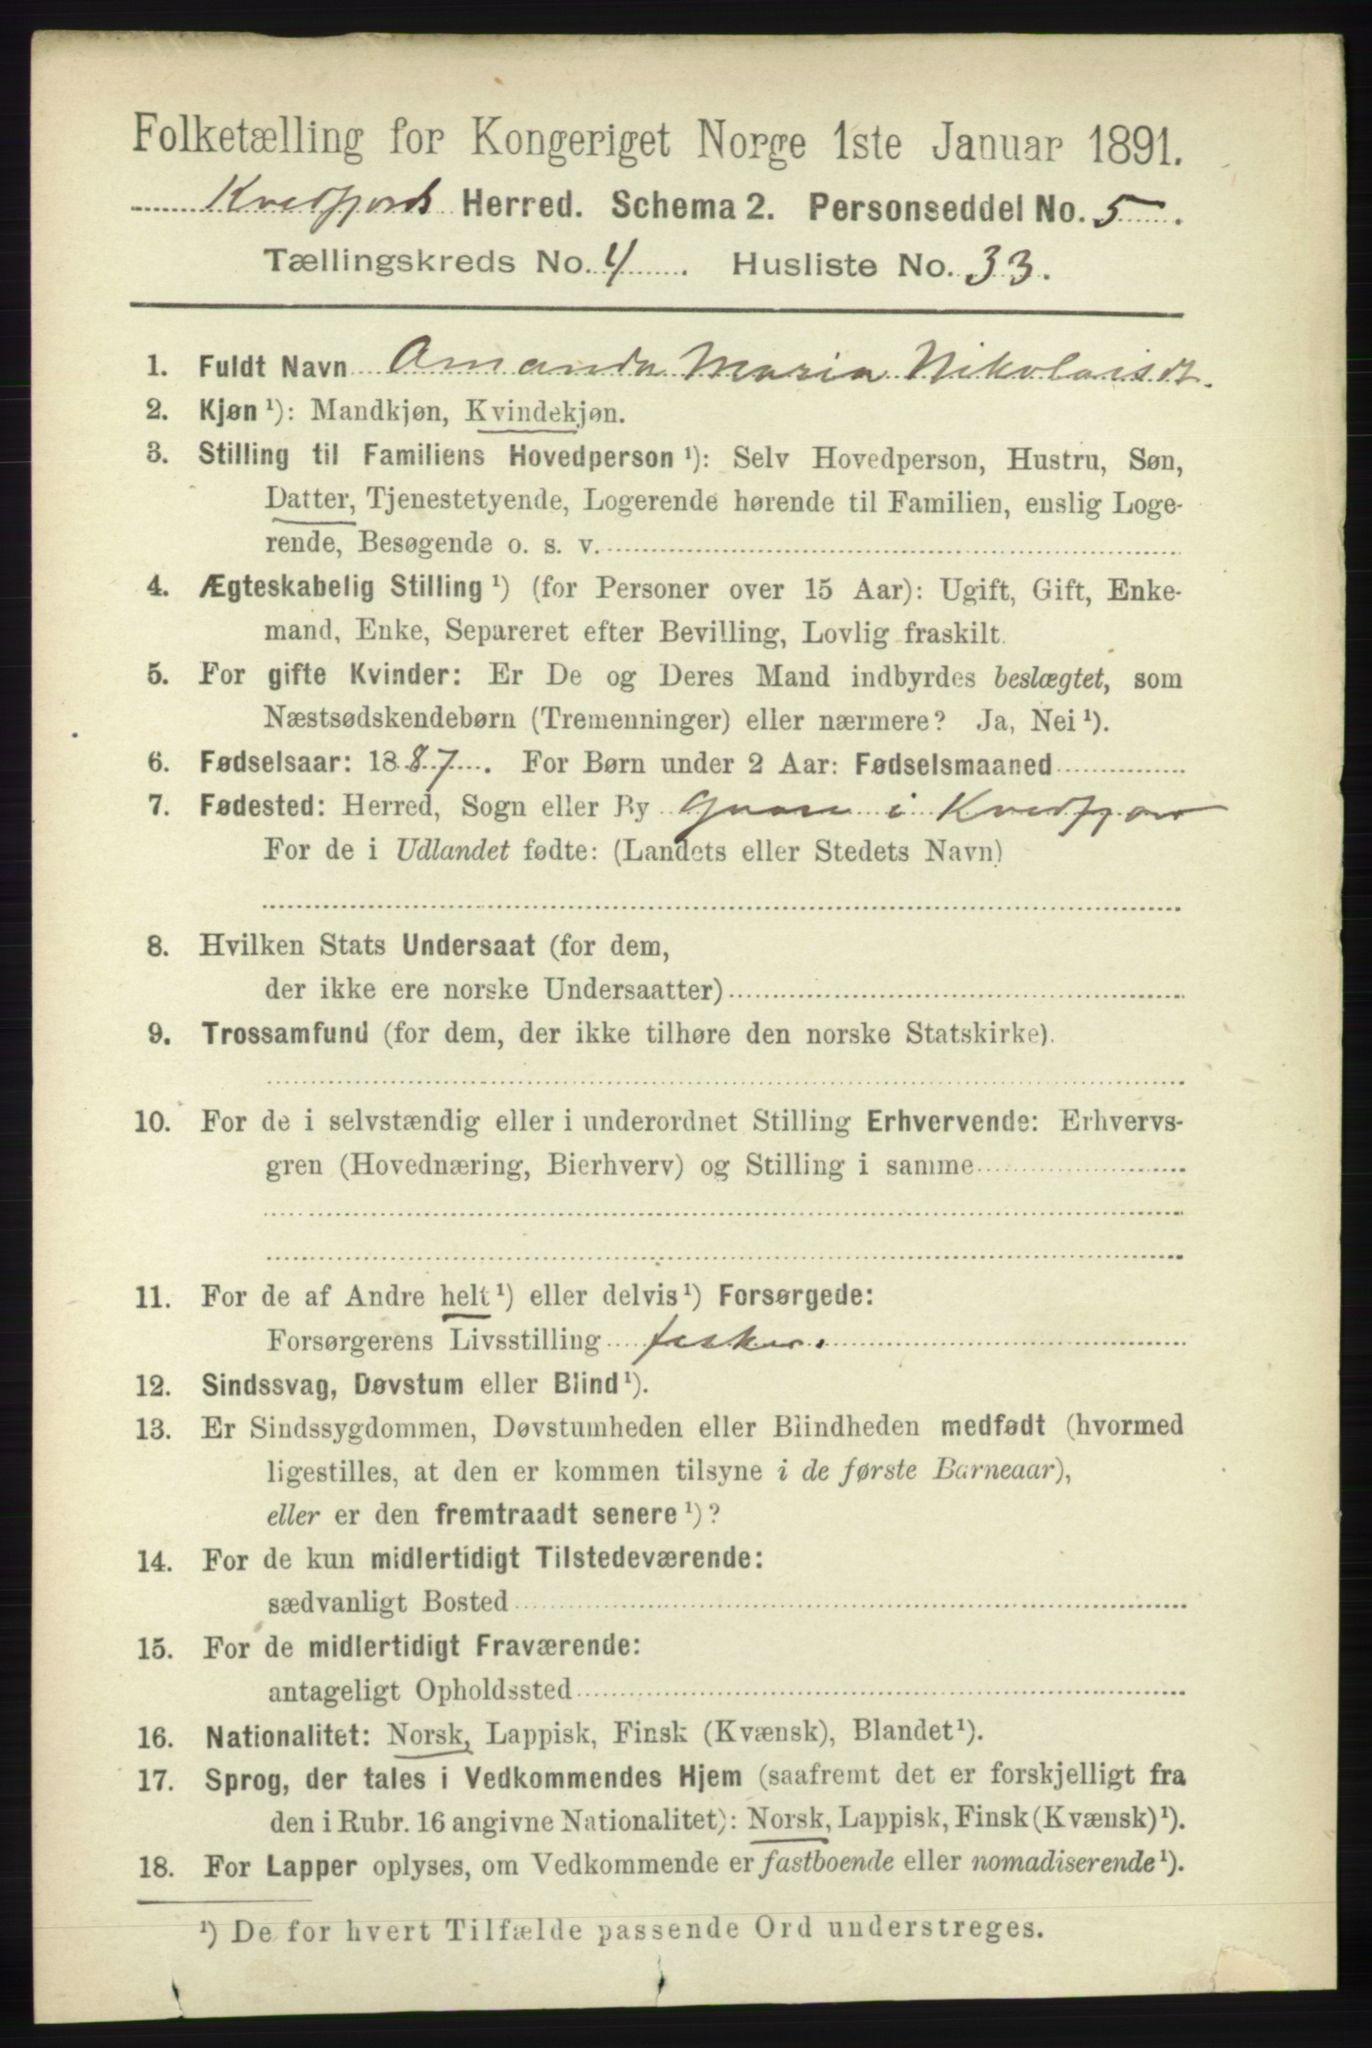 Folketælling for Kongeriget Norge 1ste Januar 1891.
Kvedfjords Herred. Schema 2. Personseddel No. 5.
Tællingskreds No. 4. Husliste No. 33.
1. Fuldt Navn Amanda Maria Nikolaisdt.
2. Kjøn ¹): Mandkjøn, Kvindekjøn.
3. Stilling til Familiens Hovedperson ¹): Selv Hovedperson, Hustru, Søn,
Datter, Tjenestetyende, Logerende hørende til Familien, enslig Loge-
rende, Besøgende o. s. v.
4. Ægteskabelig Stilling ¹) (for Personer over 15 Aar): Ugift, Gift, Enke-
mand, Enke, Separeret efter Bevilling, Lovlig fraskilt.
5. For gifte Kvinder: Er De og Deres Mand indbyrdes beslægtet, som
Næstsødskendebørn (Tremenninger) eller nærmere? Ja, Nei ¹).
6. Fødselsaar: 1887. For Børn under 2 Aar: Fødselsmaaned
7. Fødested: Herred, Sogn eller By i Kvedfjord
For de i Udlandet fødte: (Landets eller Stedets Navn)
8. Hvilken Stats Undersaat (for dem,
der ikke ere norske Undersaatter)
9. Trossamfund (for dem, der ikke tilhøre den norske Statskirke).
10. For de i selvstændig eller i underordnet Stilling Erhvervende: Erhvervs-
gren (Hovednæring, Bierhverv) og Stilling i samme
11. For de af Andre helt ¹) eller delvis ¹) Forsørgede:
Forsørgerens Livsstilling fisker.
12. Sindssvag, Døvstum eller Blind ¹).
13. Er Sindssygdommen, Døvstumheden eller Blindheden medfødt (hvormed
ligestilles, at den er kommen tilsyne i de første Barneaar),
eller er den fremtraadt senere ¹)?
14. For de kun midlertidigt Tilstedeværende:
sædvanligt Bosted
15. For de midlertidigt Fraværende:
antageligt Opholdssted
16. Nationalitet: Norsk, Lappisk, Finsk (Kvænsk), Blandet ¹).
17. Sprog, der tales i Vedkommendes Hjem (saafremt det er forskjelligt fra
den i Rubr. 16 angivne Nationalitet): Norsk, Lappisk, Finsk (Kvænsk) ¹).
18. For Lapper oplyses, om Vedkommende er fastboende eller nomadiserende ¹).
¹) De for hvert Tilfælde passende Ord understreges.